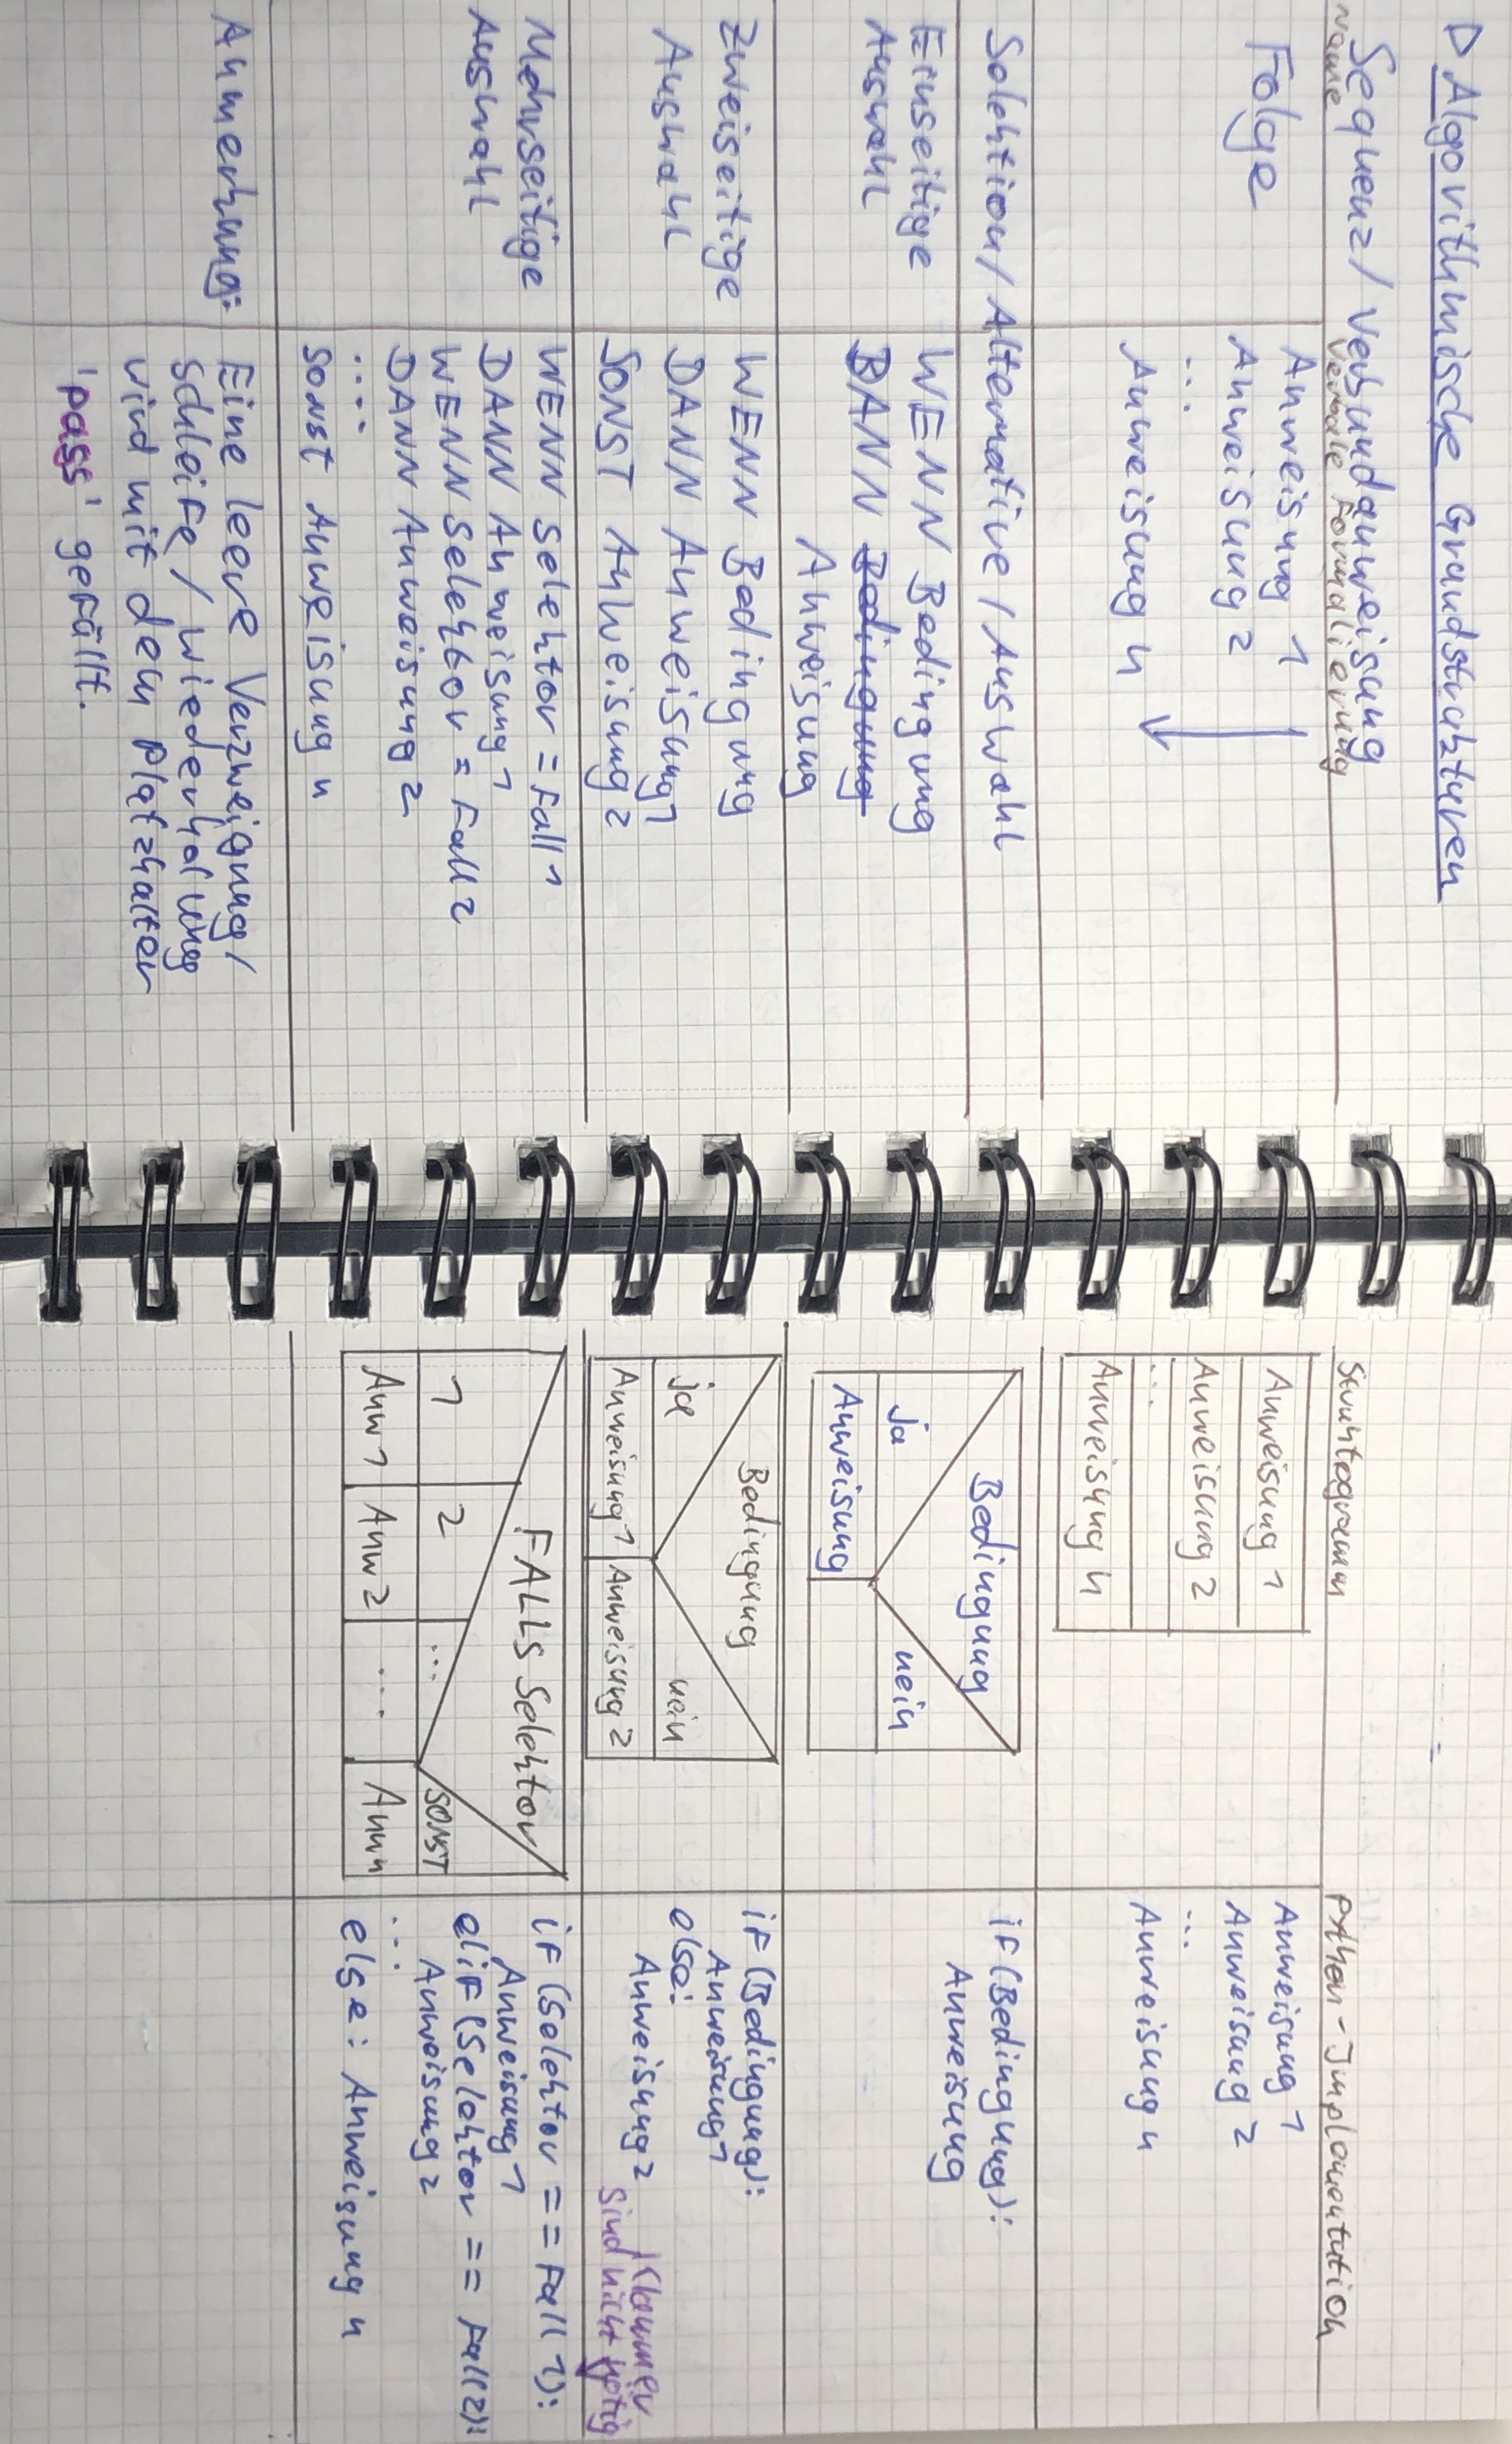 ▷ Algorithmische Grundstrukturen
Sequenz / Verbundanweisung
Name
Verbale Formalierung
Struktogramm
Python-Implementation
Folge
Anweisung 1
Anweisung 2
...
Anweisung n
Anweisung 1
Anweisung 2
...
Anweisung n
Anweisung 1
Anweisung 2
...
Anweisung n
Selektion / Alternative / Auswahl
Einseitige
Auswahl
WENN Bedingung
DANN Bedingung
Anweisung
Bedingung
ja nein
Anweisung
if (Bedingung):
Anweisung
Zweiseitige
Auswahl
WENN Bedingung
DANN Anweisung 1
SONST Anweisung 2
Bedingung
ja nein
Anweisung 1 Anweisung 2
if (Bedingung):
Anweisung 1
else:
Anweisung 2
Klammer
sind nicht nötig
Mehrseitige
Auswahl
WENN Selektor = Fall 1
DANN Anweisung 1
WENN Selektor = Fall 2
DANN Anweisung 2
....
SONST Anweisung n
FALLS Selektor
1 2 ... SONST
Anw 1 Anw 2 ... Anw n
if (Selektor == Fall 1):
Anweisung 1
elif (Selektor == Fall 2):
Anweisung 2
...
else: Anweisung n
Anmerkung:
Eine leere Verzweigung /
Schleife / Wiederholung
wird mit dem Platzhalter
'pass' gefüllt.